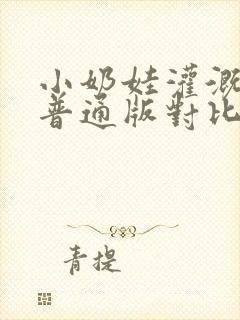 小奶娃灌溉
普通版對比
青提